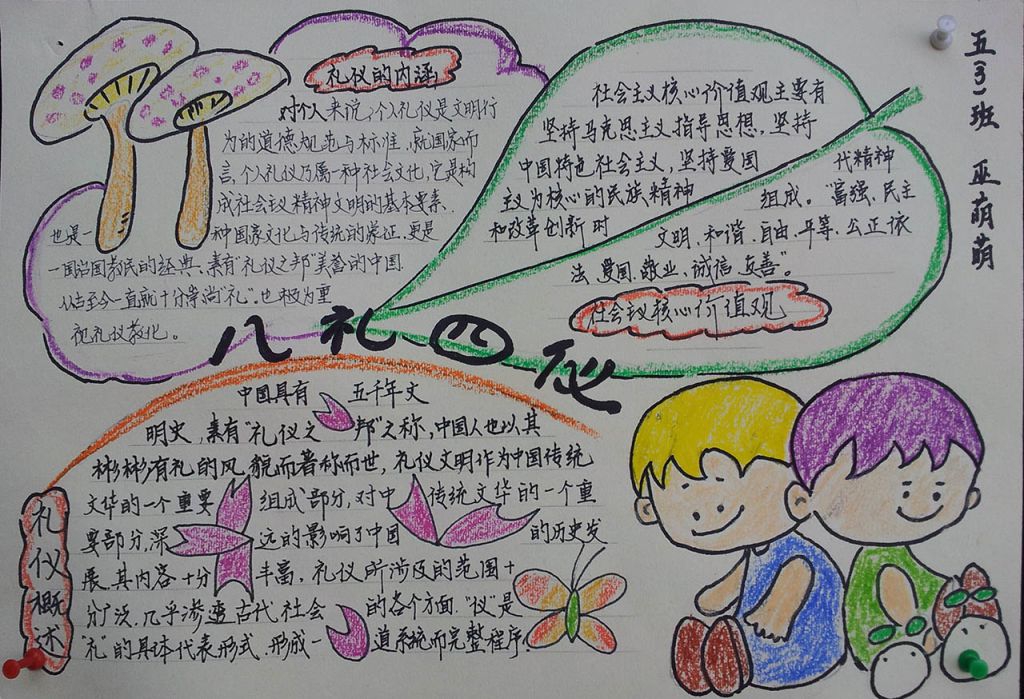 礼仪的内涵
对个人来说,个人礼仪是文明行
为的道德规范与标准,就国家而
言,个人礼仪乃属一种社会文化,它是构
成社会主义精神文明的基本要素,
也是一种国家文化与传统的象征,更是
一国治国教民的经典、素有"礼仪之邦"美誉的中国.
从古至今一直就十分崇尚"礼"。也极为重
视礼仪教化。
社会主义核心价值观主要有
坚持马克思主义指导思想,坚持
中国特色社会主义,坚持爱国
主义为核心的民族精神
和改革创新时
代精神
组成。"富强、民主
文明、和谐、自由、平等、公正、依
法、爱国、敬业、诚信、友善"。
社会主义核心价值观
五(3)班 巫萌萌
八礼四仪
礼仪概述
中国具有 五千年文
明史,素有"礼仪之 邦"之称,中国人也以其
彬彬有礼的风貌而著称而世,礼仪文明作为中国传统
文华的一个重要 组成部分,对中 传统文华的一个重
要部分,深 远的影响了中国 的历史发
展,其内容十分 丰富,礼仪所涉及的范围十
分广泛,几乎渗透古代社会 的各个方面."仪"是
"礼"的具体代表形式,形成一 道系统而完整程序.